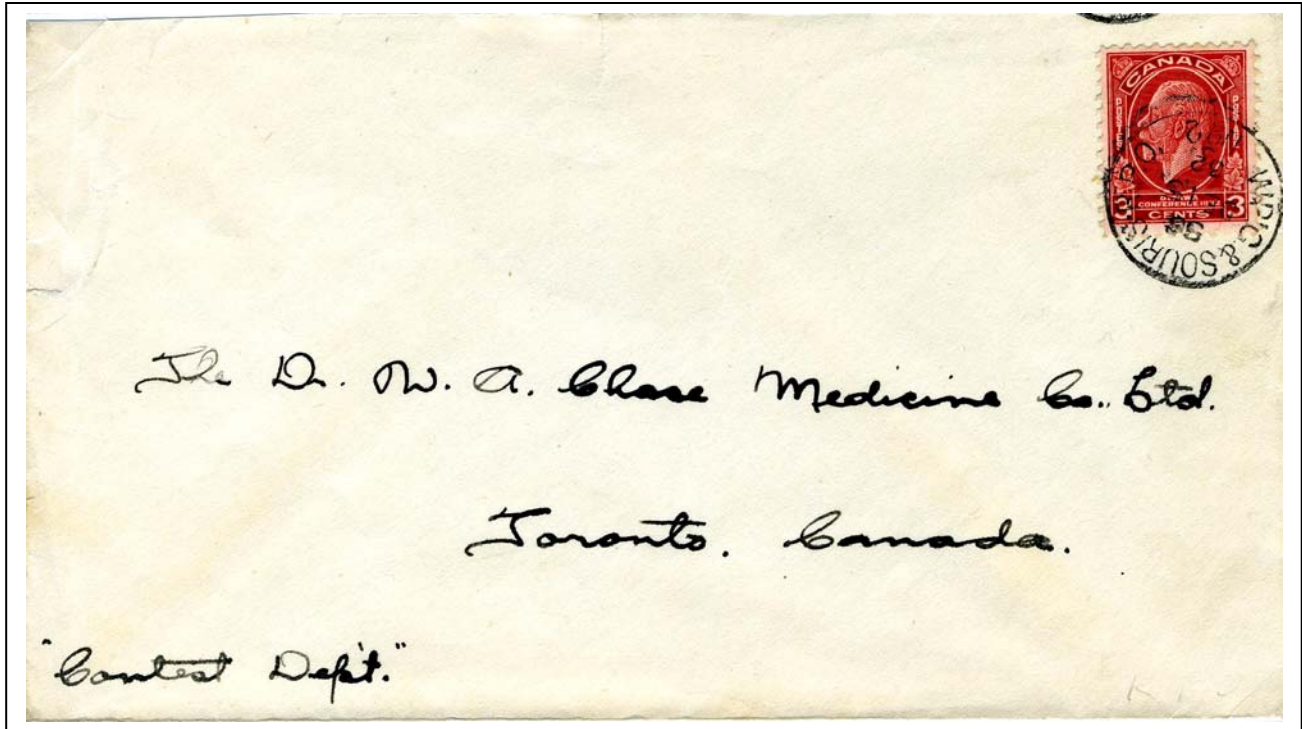 CANADA
POSTES POSTAGE
OTTAWA
CONFERENCE 1932
3 CENTS 3
WPIG & SOURIS R.P.O.
The Dr. W. A. Chase Medicine Co. Ltd.
Toronto. Canada.
"Contest Dep't."